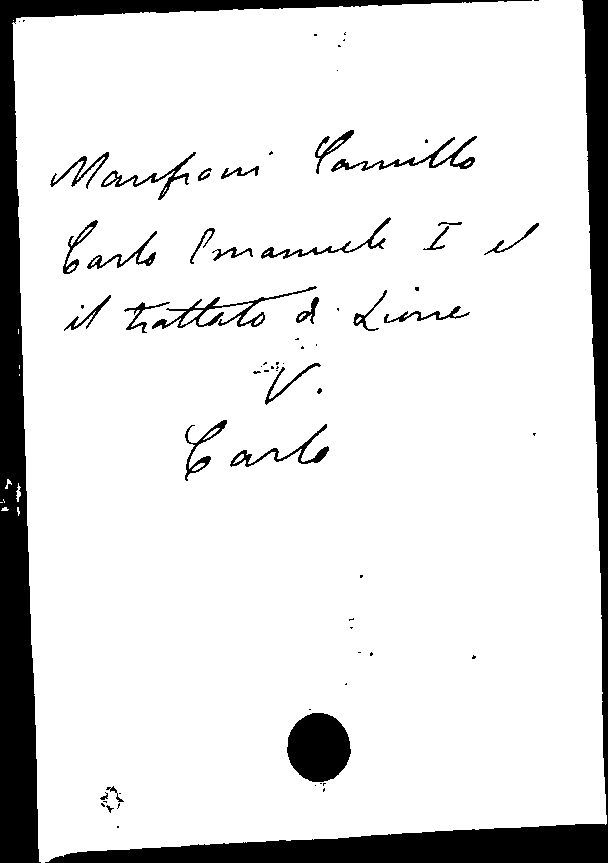 Manfroni Camillo
Carlo Emanuele I e
il trattato di Lione
V.
Carlo